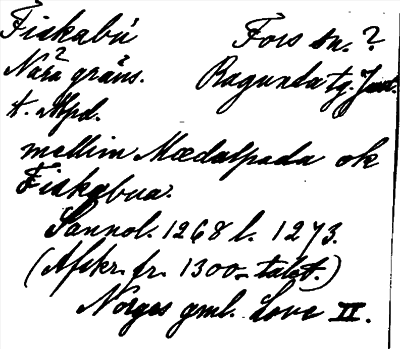 Fiskabú Fors sn.?
Nära gräns. Ragunda tg. Jmt.
t. Mpd.
mellim Mædalpada ok
Fiskabua.
Sannol. 1268 l. 1273.
(Afskr. fr. 1300-talet.)
Norges gml. Love II.